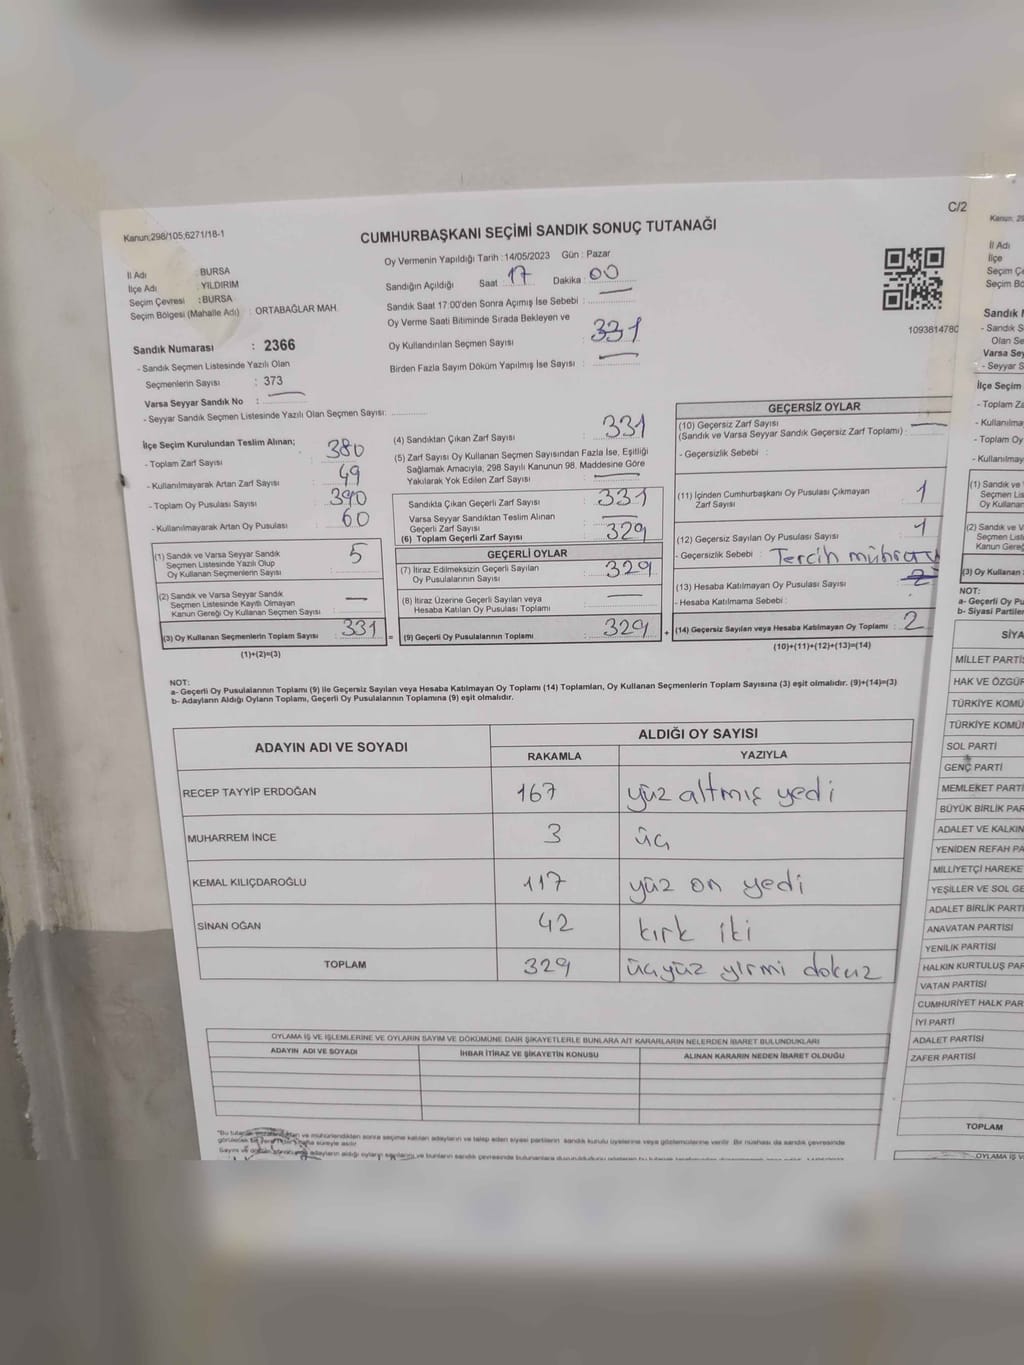 Kanun:298/105;6271/18-1
CUMHURBAŞKANI SEÇİMİ SANDIK SONUÇ TUTANAĞI
C/2
İl Adı : BURSA
İlçe Adı : YILDIRIM
Seçim Çevresi : BURSA
Seçim Bölgesi (Mahalle Adı) : ORTABAĞLAR MAH.
Sandık Numarası : 2366
- Sandık Seçmen Listesinde Yazılı Olan
Seçmenlerin Sayısı : 373
Varsa Seyyar Sandık No :
- Seyyar Sandık Seçmen Listesinde Yazılı Olan Seçmen Sayısı:
Oy Vermenin Yapıldığı Tarih : 14/05/2023 Gün : Pazar
Sandığın Açıldığı Saat : 17 Dakika : 00
Sandık Saat 17:00'den Sonra Açımış İse Sebebi :
Oy Verme Saati Bitiminde Sırada Bekleyen ve
Oy Kullandırılan Seçmen Sayısı : 331
Birden Fazla Sayım Döküm Yapılmış İse Sayısı :
1093814780
İlçe Seçim Kurulundan Teslim Alınan;
- Toplam Zarf Sayısı : 380
- Kullanılmayarak Artan Zarf Sayısı : 49
- Toplam Oy Pusulası Sayısı : 390
- Kullanılmayarak Artan Oy Pusulası : 60
(1) Sandık ve Varsa Seyyar Sandık
Seçmen Listesinde Yazılı Olup
Oy Kullanan Seçmenlerin Sayısı : 5
(2) Sandık ve Varsa Seyyar Sandık
Seçmen Listesinde Kayıtlı Olmayan
Kanun Gereği Oy Kullanan Seçmen Sayısı : —
(3) Oy Kullanan Seçmenlerin Toplam Sayısı : 331
(1)+(2)=(3)
(4) Sandıktan Çıkan Zarf Sayısı : 331
(5) Zarf Sayısı Oy Kullanan Seçmen Sayısından Fazla İse, Eşitliği
Sağlamak Amacıyla, 298 Sayılı Kanunun 98. Maddesine Göre
Yakılarak Yok Edilen Zarf Sayısı : —
Sandıkta Çıkan Geçerli Zarf Sayısı : 331
Varsa Seyyar Sandıktan Teslim Alınan
Geçerli Zarf Sayısı : —
(6) Toplam Geçerli Zarf Sayısı : 329
GEÇERLİ OYLAR
(7) İtiraz Edilmeksizin Geçerli Sayılan
Oy Pusulalarının Sayısı : 329
(8) İtiraz Üzerine Geçerli Sayılan veya
Hesaba Katılan Oy Pusulası Toplamı : —
= (9) Geçerli Oy Pusulalarının Toplamı : 329
GEÇERSİZ OYLAR
(10) Geçersiz Zarf Sayısı
(Sandık ve Varsa Seyyar Sandık Geçersiz Zarf Toplamı) : —
- Geçersizlik Sebebi :
(11) İçinden Cumhurbaşkanı Oy Pusulası Çıkmayan
Zarf Sayısı : 1
(12) Geçersiz Sayılan Oy Pusulası Sayısı : 1
- Geçersizlik Sebebi : Tercih
(13) Hesaba Katılmayan Oy Pusulası Sayısı :
- Hesaba Katılmama Sebebi :
+ (14) Geçersiz Sayılan veya Hesaba Katılmayan Oy Toplamı : 2
(10)+(11)+(12)+(13)=(14)
NOT:
a- Geçerli Oy Pusulalarının Toplamı (9) ile Geçersiz Sayılan veya Hesaba Katılmayan Oy Toplamı (14) Toplamları, Oy Kullanan Seçmenlerin Toplam Sayısına (3) eşit olmalıdır. (9)+(14)=(3)
b- Adayların Aldığı Oyların Toplamı, Geçerli Oy Pusulalarının Toplamına (9) eşit olmalıdır.
ADAYIN ADI VE SOYADI
ALDIĞI OY SAYISI
RAKAMLA YAZIYLA
RECEP TAYYİP ERDOĞAN 167 yüz altmış yedi
MUHARREM İNCE 3 üç
KEMAL KILIÇDAROĞLU 117 yüz on yedi
SİNAN OĞAN 42 kırk iki
TOPLAM 329 üçyüz yirmi dokuz
OYLAMA İŞ VE İŞLEMLERİNE VE OYLARIN SAYIM VE DÖKÜMÜNE DAİR ŞİKAYETLERLE BUNLARA AİT KARARLARIN NELERDEN İBARET BULUNDUKLARI
ADAYIN ADI VE SOYADI İHBAR İTİRAZ VE ŞİKAYETİN KONUSU ALINAN KARARIN NEDEN İBARET OLDUĞU
İl Adı
İlçe
Sandık
Varsa Sey
İlçe Seçim
- Toplam Za
- Kullanılma
- Toplam Oy
- Kullanılmay
(1) Sandık ve
Seçmen Lis
Oy Kullanan
(2) Sandık ve
Seçmen List
Kanun Gere
(3) Oy Kullanan
NOT:
a- Geçerli Oy Pu
b- Siyasi Partiler
SİYA
MİLLET PARTİS
HAK VE ÖZGÜR
TÜRKİYE KOMÜ
TÜRKİYE KOMÜN
SOL PARTİ
GENÇ PARTİ
MEMLEKET PARTİ
BÜYÜK BİRLİK PAR
ADALET VE KALKIN
YENİDEN REFAH PA
MİLLİYETÇİ HAREKE
YEŞİLLER VE SOL GE
ADALET BİRLİK PARTİ
ANAVATAN PARTİSİ
YENİLİK PARTİSİ
HALKIN KURTULUŞ PAR
VATAN PARTİSİ
CUMHURİYET HALK PAR
İYİ PARTİ
ADALET PARTİSİ
ZAFER PARTİSİ
TOPLAM
OYLAMA İŞ V